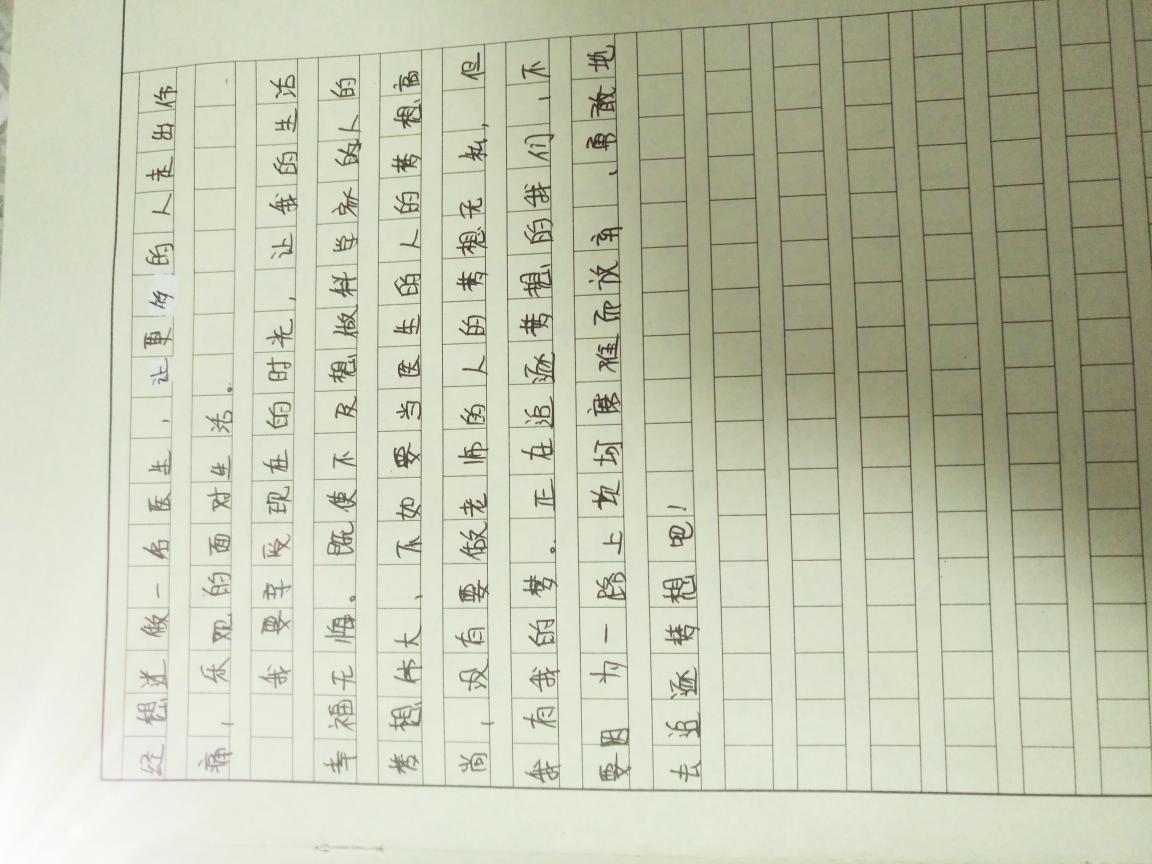 经想过做一名医生，让更多的人走出伤
痛，乐观的面对生活。
我要享受现在的时光，让我的生活
幸福无悔。既使不及想做科学家的人的
梦想伟大、不如要当医生的人的梦想高
尚，没有要做老师的人的梦想无私，但
我有我的梦。正在追逐梦想的我们，不
要因为一路上坎坷磨难而放弃，勇敢地
去追逐梦想吧！